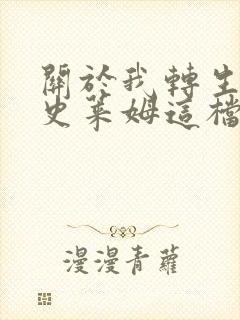 關於我轉生
史萊姆這檔
漫漫青蘿